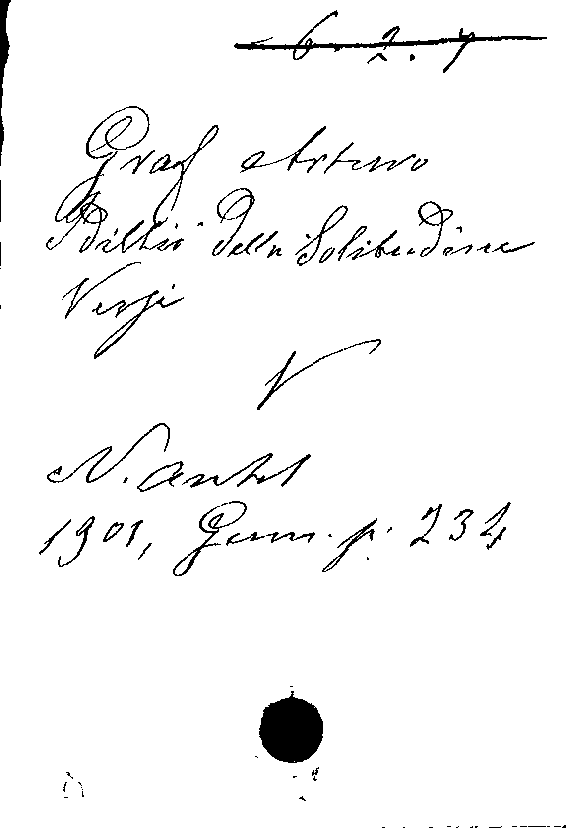 6. 2. 7
Graf Arturo
Idillio della Solitudine
Versi
V
N. Antol
1901, Genn. p. 234